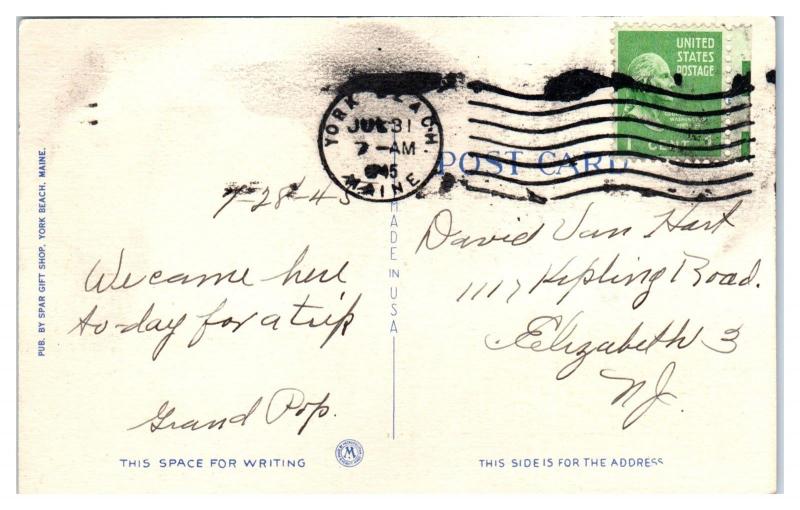 YORK BEACH
JUL 31
7-AM
1945
MAINE
UNITED
STATES
POSTAGE
1 CENT
POST CARD
7-28-45
We came here
to-day for a trip
Grand Pop.
David Van Hart
1117 Kipling Road.
Elizabeth 3
NJ.
PUB. BY SPAR GIFT SHOP, YORK BEACH, MAINE.
MADE IN USA
THIS SPACE FOR WRITING
M
THIS SIDE IS FOR THE ADDRESS